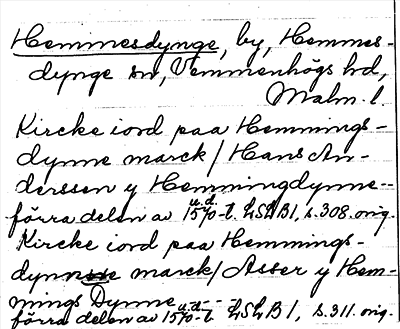 Hemmesdynge, by, Hemmes-
dynge sn, Vemmenhögs hd,
Malm. l.
Kircke iord paa Hemmings-
dynne marck / Hans An-
derssen y Hemmingdynne--
förra delen av u.d. 1570-t. LSLB1, s. 308. orig.
Kircke iord paa Hemmings-
dynne marck / Asser y Hem-
mings Dynne--
förra delen av u.d. 1570-t. LSLB1, s. 311. orig.